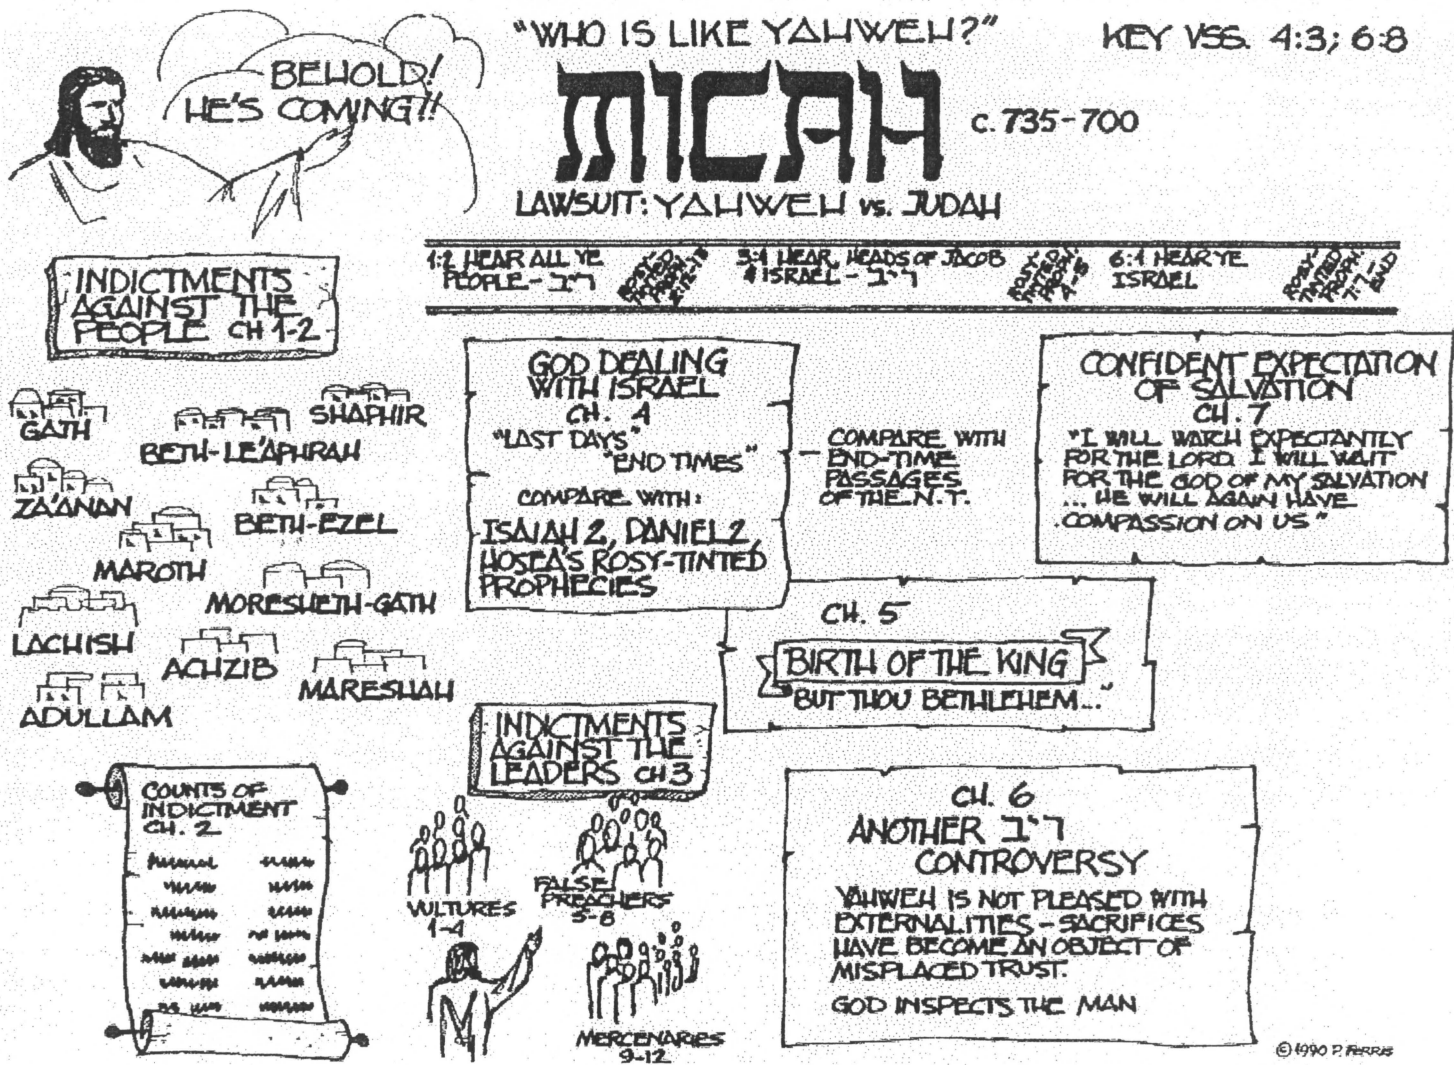 "WHO IS LIKE YAHWEH?"
KEY VSS. 4:3; 6:8
BEHOLD!
HE'S COMING!!
MICAH
c. 735-700
LAWSUIT: YAHWEH vs. JUDAH
1:2 HEAR ALL YE
PEOPLE - ריב
ROSY-
TINTED
PROPH.
2:12-13
3:1 HEAR, HEADS OF JACOB
& ISRAEL - ריב
ROSY-
TINTED
PROPH.
4-5
6:1 HEAR YE
ISRAEL
ROSY-
TINTED
PROPH.
7:7-
END
INDICTMENTS
AGAINST THE
PEOPLE CH 1-2
GATH
SHAPHIR
BETH-LE'APHRAH
ZA'ANAN
BETH-EZEL
MAROTH
MORESHETH-GATH
LACHISH
ACHZIB
MARESHAH
ADULLAM
GOD DEALING
WITH ISRAEL
CH. 4
"LAST DAYS"
"END TIMES"
COMPARE WITH:
ISAIAH 2, DANIEL 2,
HOSEA'S ROSY-TINTED
PROPHECIES
- COMPARE WITH
END-TIME
PASSAGES
OF THE N.T.
CONFIDENT EXPECTATION
OF SALVATION
CH. 7
"I WILL WATCH EXPECTANTLY
FOR THE LORD. I WILL WAIT
FOR THE GOD OF MY SALVATION
... HE WILL AGAIN HAVE
COMPASSION ON US"
CH. 5
BIRTH OF THE KING
"BUT THOU BETHLEHEM..."
INDICTMENTS
AGAINST THE
LEADERS CH 3
COUNTS OF
INDICTMENT
CH. 2
VULTURES
1-4
FALSE
PREACHERS
5-8
MERCENARIES
9-12
CH. 6
ANOTHER ריב
CONTROVERSY
YAHWEH IS NOT PLEASED WITH
EXTERNALITIES - SACRIFICES
HAVE BECOME AN OBJECT OF
MISPLACED TRUST.
GOD INSPECTS THE MAN
©1990 P. FERRIS